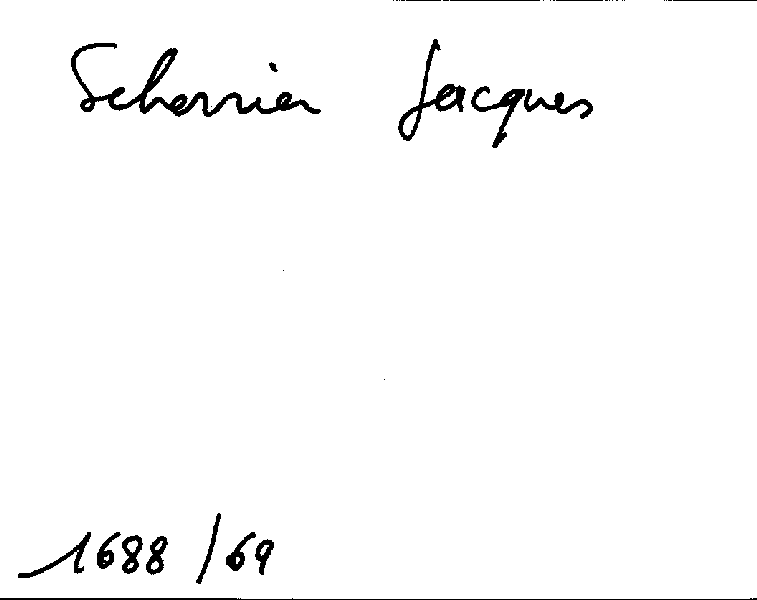 Scherrier Jacques
1688/69